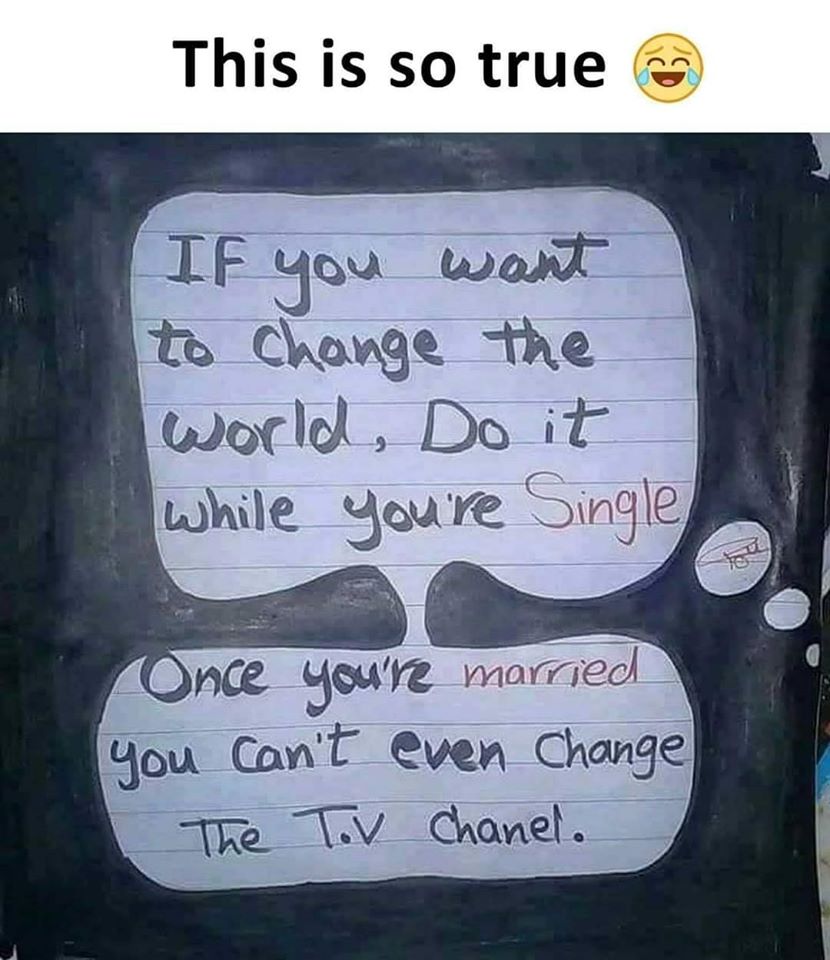 This is so true 😂
IF you want
to change the
world, Do it
while you're Single
Once you're married
you can't even change
The T.V chanel.